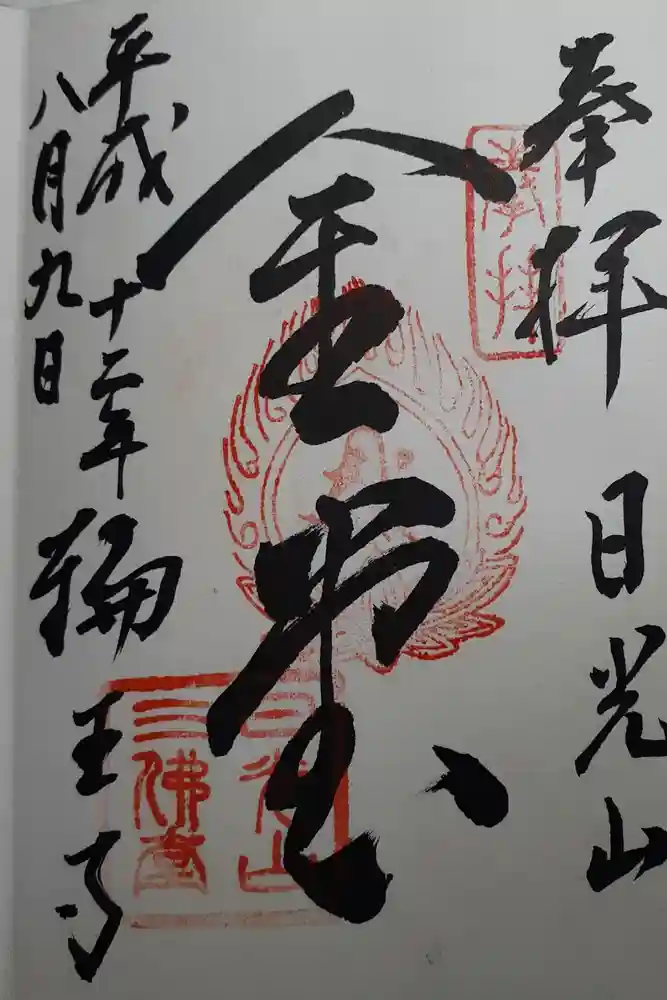 奉拝
日光山
金堂
平成十二年
八月九日
輪王寺
奉拝
日光山
三佛堂